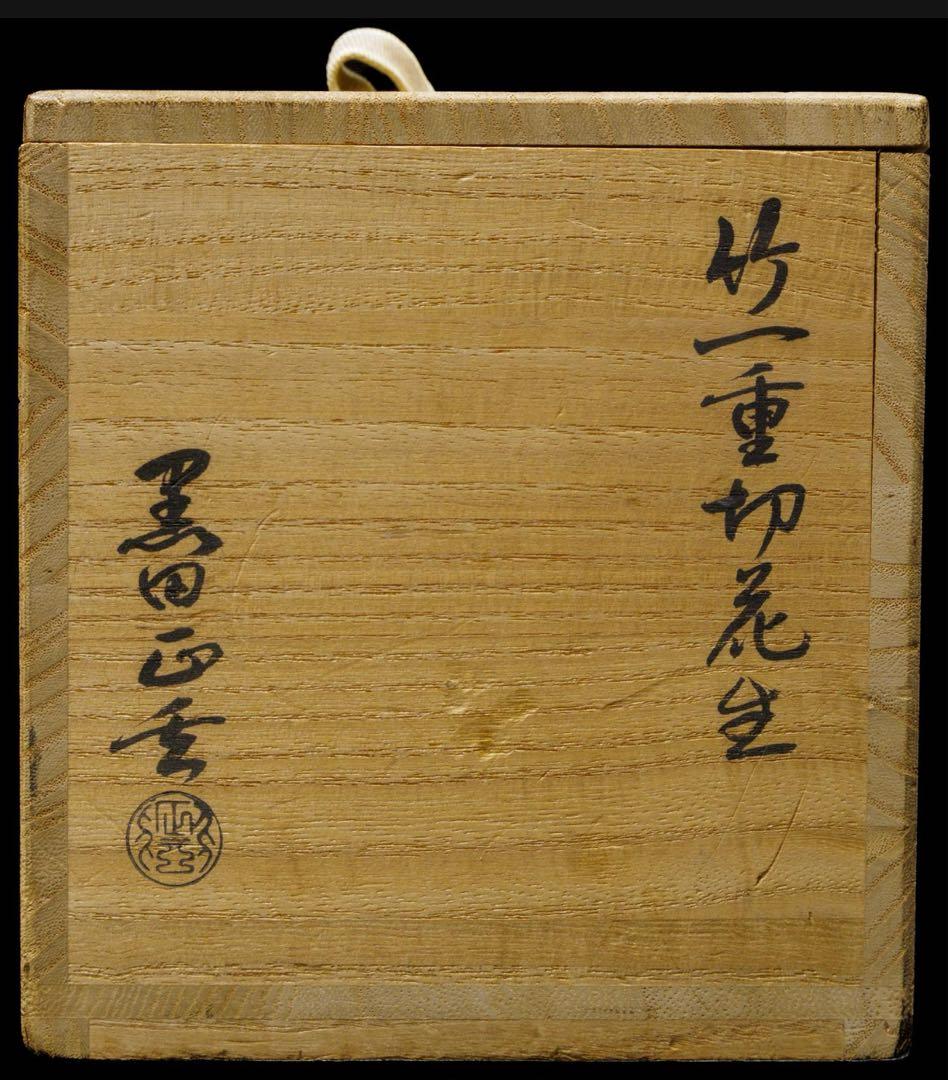 竹一重切花生
黒田正玄